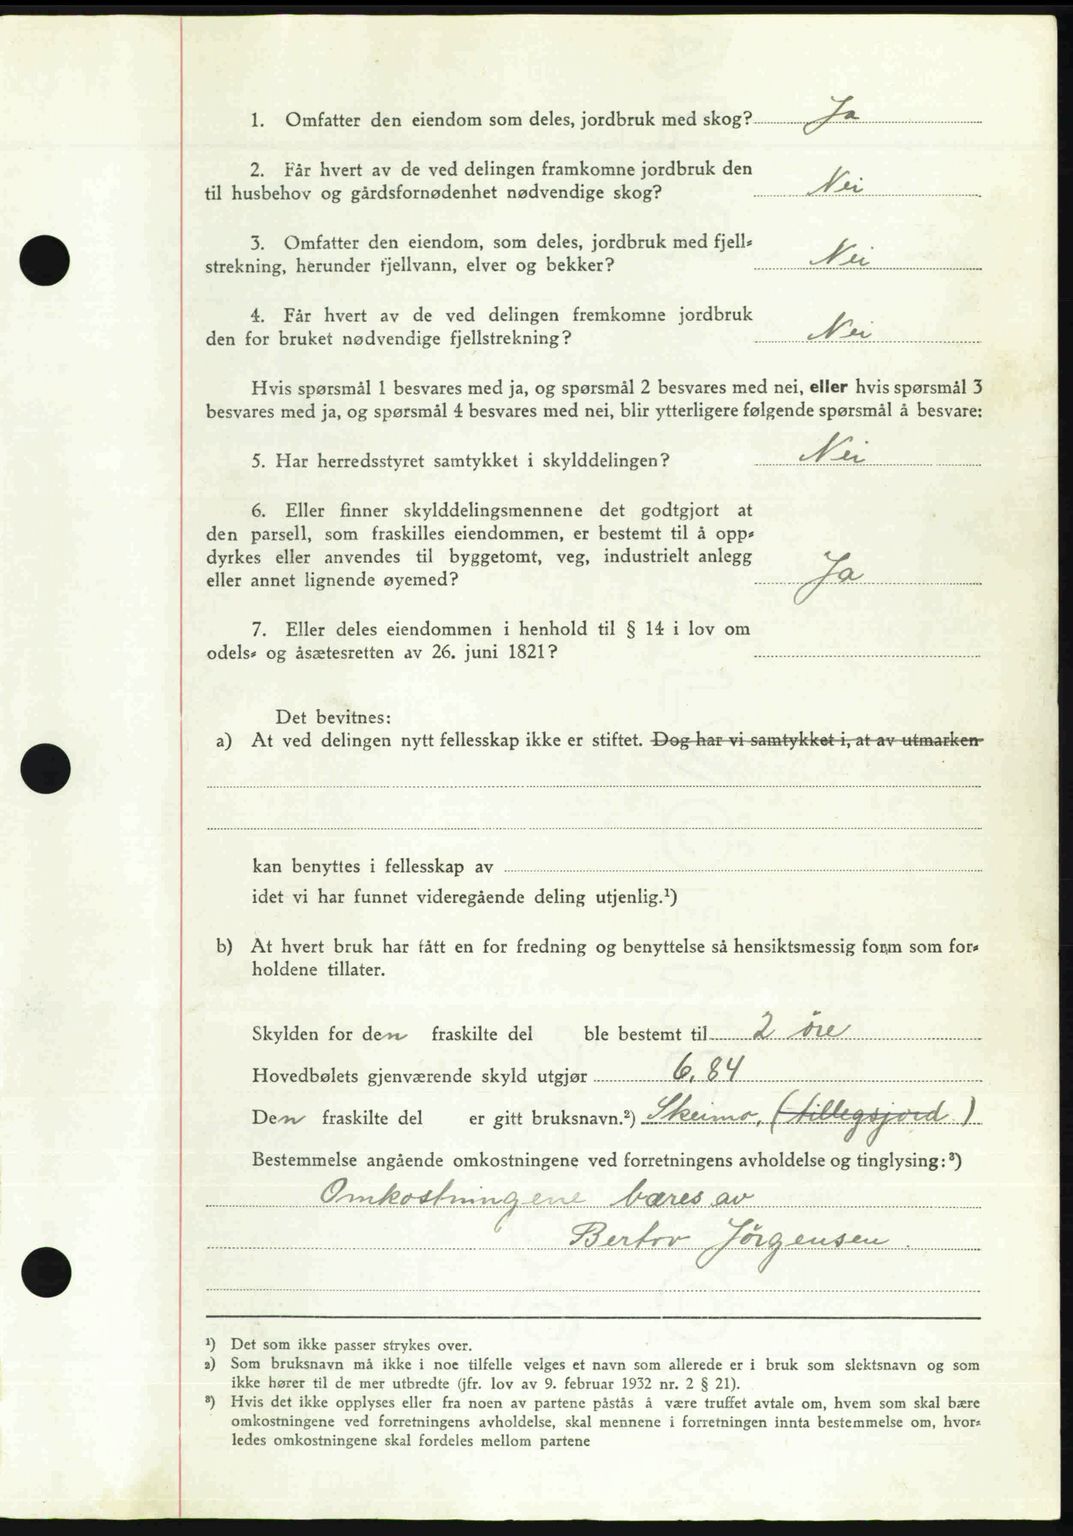 1. Omfatter den eiendom som deles, jordbruk med skog? Ja
2. Får hvert av de ved delingen framkomne jordbruk den
til husbehov og gårdsfornødenhet nødvendige skog? Nei
3. Omfatter den eiendom, som deles, jordbruk med fjell⸗
strekning, herunder fjellvann, elver og bekker? Nei
4. Får hvert av de ved delingen fremkomne jordbruk
den for bruket nødvendige fjellstrekning? Nei
Hvis spørsmål 1 besvares med ja, og spørsmål 2 besvares med nei, eller hvis spørsmål 3
besvares med ja, og spørsmål 4 besvares med nei, blir ytterligere følgende spørsmål å besvare:
5. Har herredsstyret samtykket i skylddelingen? Nei
6. Eller finner skylddelingsmennene det godtgjort at
den parsell, som fraskilles eiendommen, er bestemt til å opp⸗
dyrkes eller anvendes til byggetomt, veg, industrielt anlegg
eller annet lignende øyemed? Ja
7. Eller deles eiendommen i henhold til § 14 i lov om
odels⸗ og åsætesretten av 26. juni 1821?
Det bevitnes:
a) At ved delingen nytt fellesskap ikke er stiftet. Dog har vi samtykket i, at av utmarken
kan benyttes i fellesskap av
idet vi har funnet videregående deling utjenlig.¹)
b) At hvert bruk har fått en for fredning og benyttelse så hensiktsmessig form som for⸗
holdene tillater.
Skylden for den fraskilte del ble bestemt til 2 öre
Hovedbølets gjenværende skyld utgjør 6,84
Den fraskilte del er gitt bruksnavn.²) Skeimo, (tillegsjord)
Bestemmelse angående omkostningene ved forretningens avholdelse og tinglysing:³)
Omkostningene bæres av
Bertov Jörgensen.
¹) Det som ikke passer strykes over.
²) Som bruksnavn må ikke i noe tilfelle velges et navn som allerede er i bruk som slektsnavn og som
ikke hører til de mer utbredte (jfr. lov av 9. februar 1932 nr. 2 § 21).
³) Hvis det ikke opplyses eller fra noen av partene påstås å være truffet avtale om, hvem som skal bære
omkostningene ved forretningens avholdelse, skal mennene i forretningen innta bestemmelse om, hvor⸗
ledes omkostningene skal fordeles mellom partene